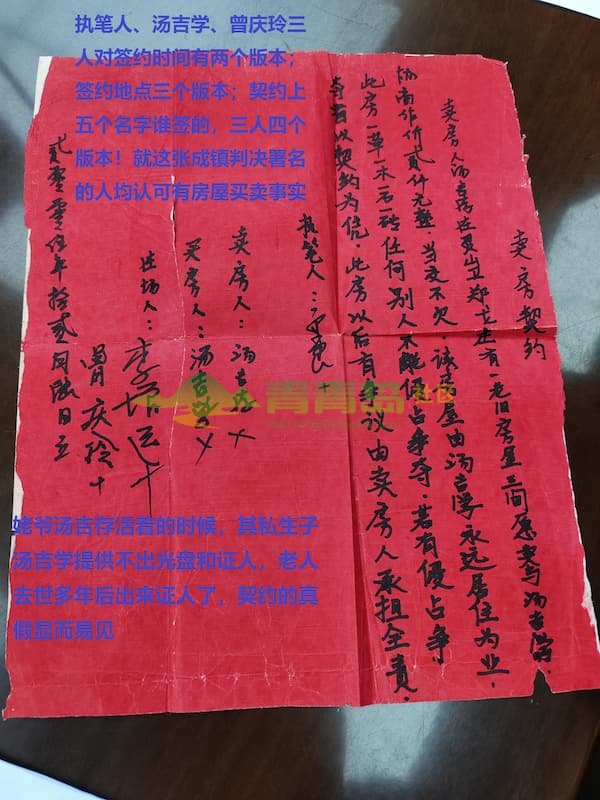 执笔人、汤吉学、曾庆玲三
人对签约时间有两个版本；
签约地点三个版本；契约上
五个名字谁签的，三人四个
版本！就这张成镇判决署名
的人均认可有房屋买卖事实
卖房契约
卖房人汤吉存 有一老旧房屋三间愿卖与汤吉学，
协商作价贰仟元整，当交不欠，该房屋由汤吉学永远居住为业，
此房一草一木一石一砖任何别人不能侵占争夺，若有侵占争
夺者以契约为凭，此房以后有争议由卖房人承担全责。
执笔人：
卖房人：汤吉存 十
买房人：汤吉学 十
在场人：李 运 十
曾庆玲 十
贰零零伍年拾贰月 日立
青青岛社区
club.qingdaonews.com
她爷汤吉存活着的时候，其私生子
汤吉学提供不出光盘和证人，老人
去世多年后出来证人了，契约的真
假显而易见